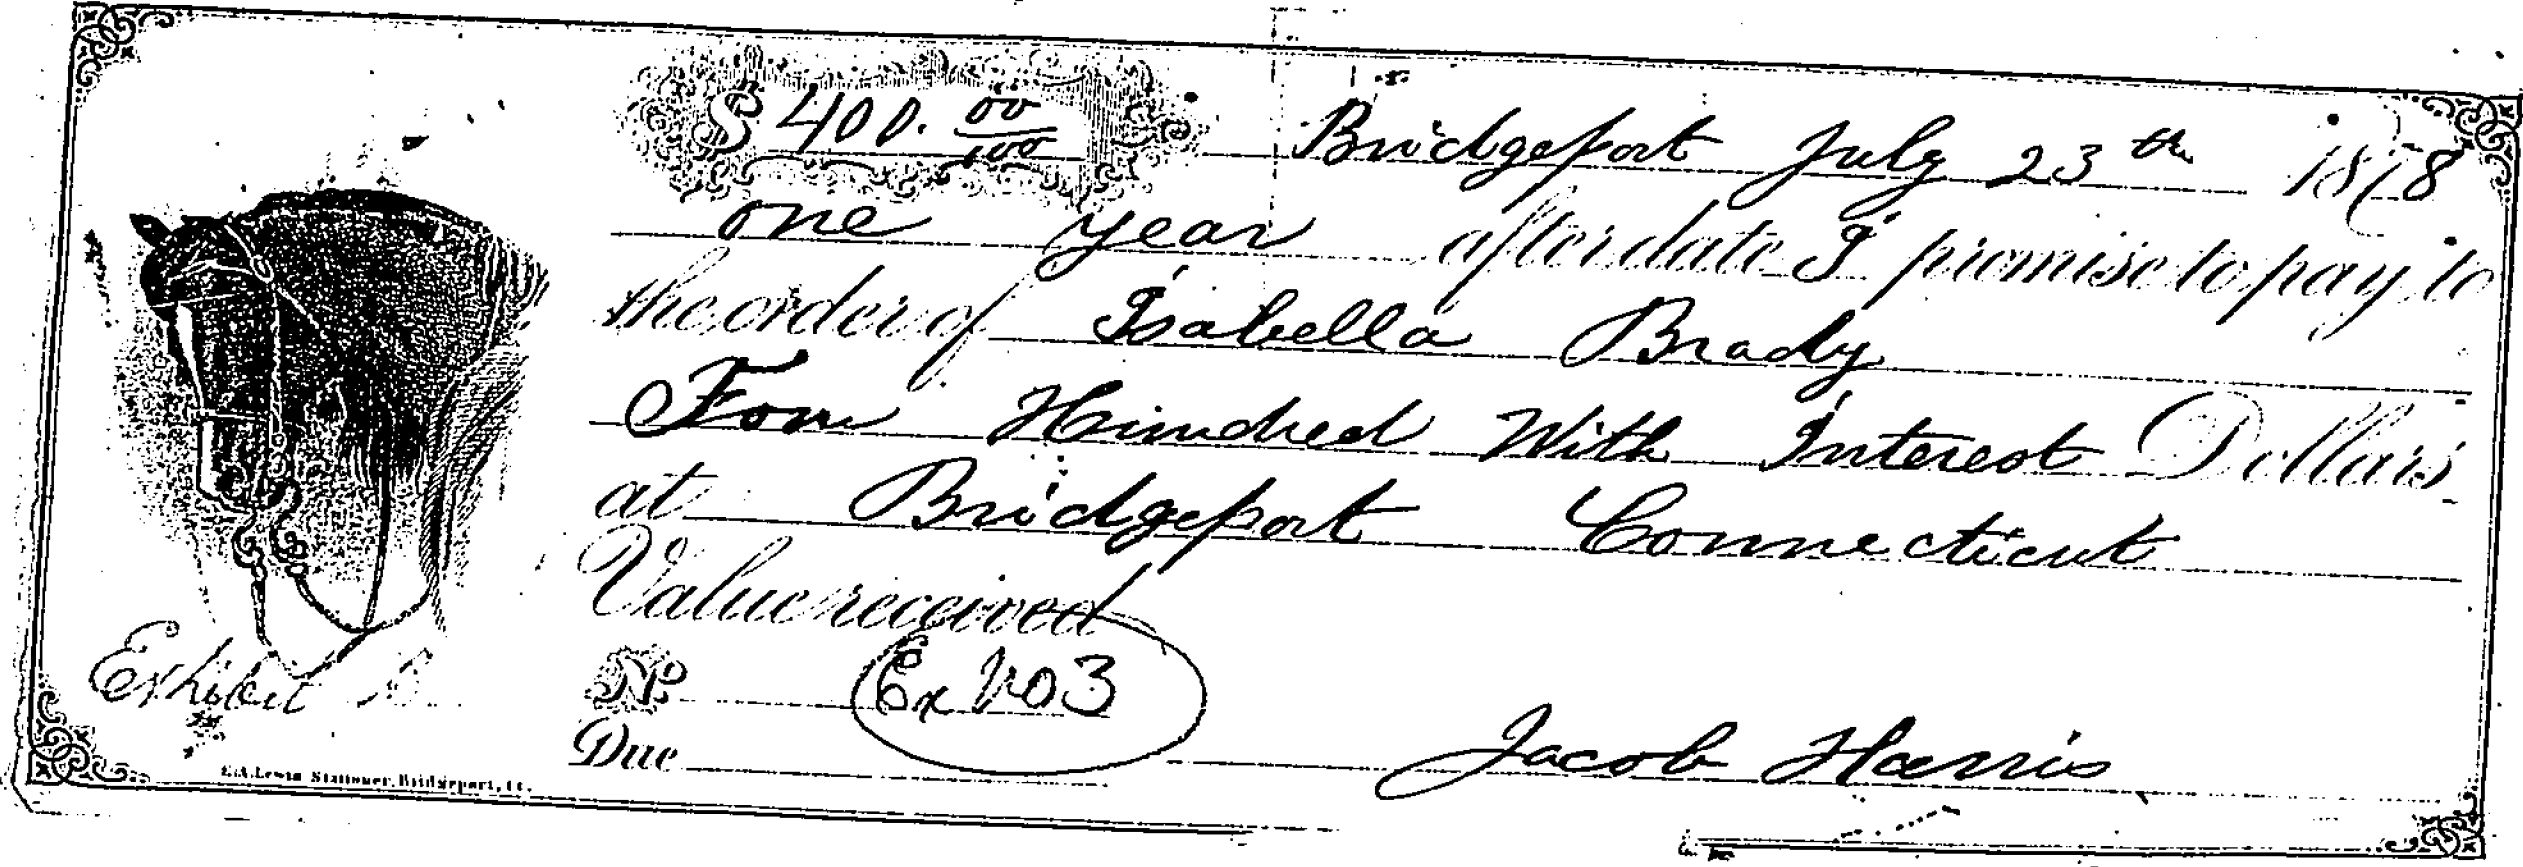 $ 400. 00/100 Bridgeport July 23th 1878
one year after date I promise to pay to
the order of Isabella Brady
Four Hundred With Interest Dollars
at Bridgeport Connecticut
Value received
No Ex No 3
Due Jacob Harris
Exhibit B
E.A. Lewis Stationer, Bridgeport, Ct.